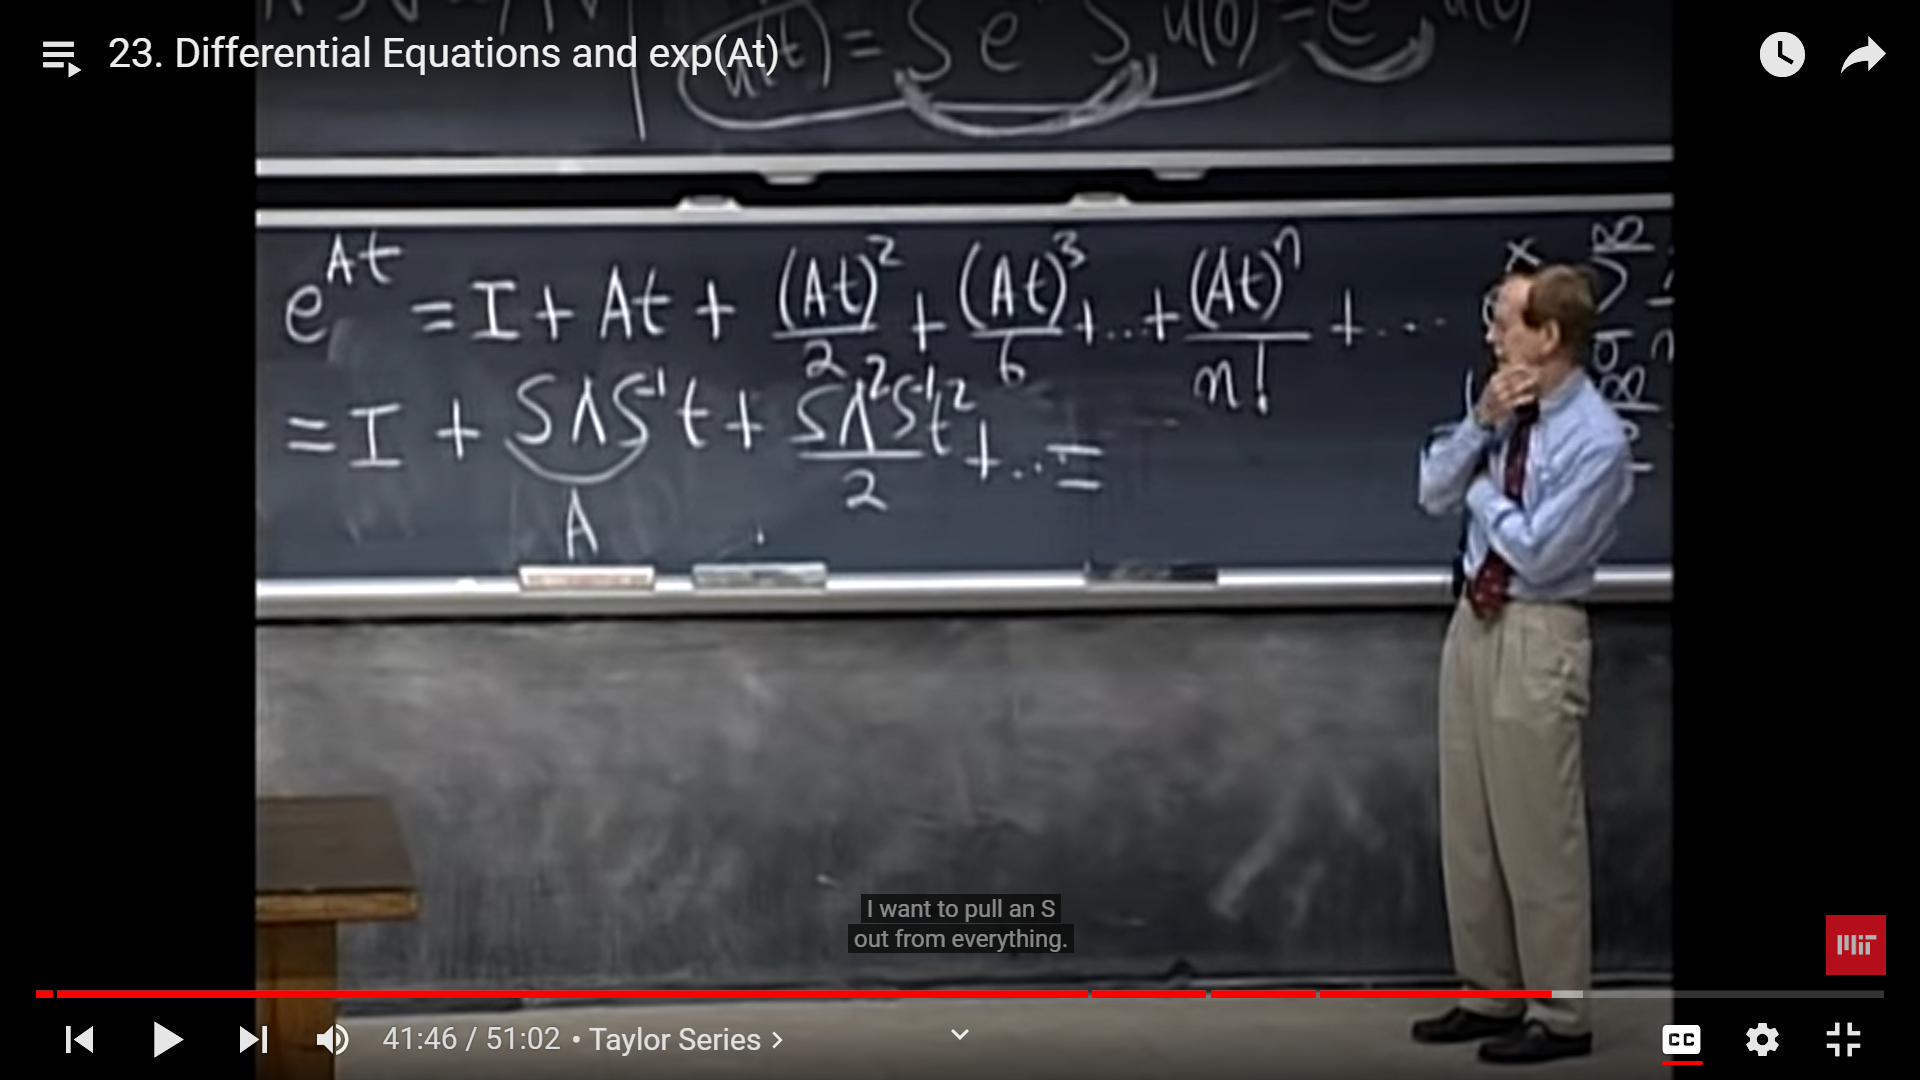 23. Differential Equations and exp(At)
u(t) = S e S u(0) = e u(0)
e^{At} = I + At + (At)²/2 + (At)³/6 + .. + (At)ⁿ/n! + ...
= I + SΛS⁻¹ t + SΛ²S⁻¹t²/2 + ... =
A
I want to pull an S
out from everything.
MiT
41:46 / 51:02 • Taylor Series >
CC